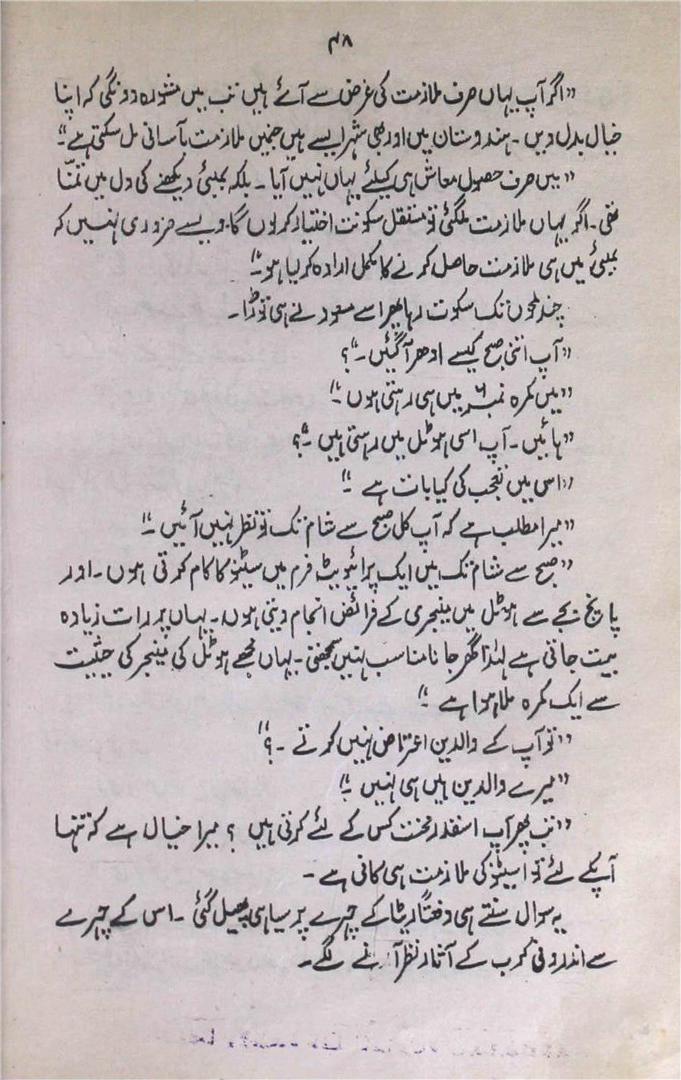 ۴۸
"اگر آپ یہاں صرف ملازمت کی غرض سے آئے ہیں تب میں مشورہ دونگی کہ اپنا
خیال بدل دیں ۔ ہندوستان میں اور بھی شہر ایسے ہیں جنمیں ملازمت بآسانی مل سکتی ہے"۔
"میں صرف حصول معاش ہی کیلئے یہاں نہیں آیا ۔ بلکہ بمبئی دیکھنے کی دل میں تمنّا
تھی ۔ اگر یہاں ملازمت ملگئی تو مستقل سکونت اختیار کر لوں گا ۔ ویسے ضروری نہیں کہ
بمبئی میں ہی ملازمت حاصل کرنے کا مکمل ارادہ کر لیا ہو ۔"
چند لمحوں تک سکوت رہا پھر اسے مسعود نے ہی توڑا ۔
"آپ اتنی صبح کیسے ادھر آگئیں ۔"؟
"میں کمرہ نمبر ۶ میں ہی رہتی ہوں ۔"
"ہائیں ۔ آپ اسی ہوٹل میں رہتی ہیں ۔"؟
"اس میں تعجب کی کیا بات ہے ۔"
"میرا مطلب ہے کہ آپ کل صبح سے شام تک تو نظر نہیں آئیں ۔"
"صبح سے شام تک میں ایک پرائیویٹ فرم میں سٹینو کا کام کرتی ہوں ۔ اور
پانچ بجے سے ہوٹل میں مینجری کے فرائض انجام دیتی ہوں ۔ یہاں پر رات زیادہ
بیت جاتی ہے لہٰذا گھر جانا مناسب نہیں سمجھتی ۔ یہاں مجھے ہوٹل کی مینجر کی حیثیت
سے ایک کمرہ ملا ہوا ہے ۔"
"تو آپ کے والدین اعتراض نہیں کرتے ۔؟"
"میرے والدین ہیں ہی نہیں ۔"
"تب پھر آپ اسقدر محنت کس کے لئے کرتی ہیں ؟ میرا خیال ہے کہ تنہا
آپکے لئے تو اسٹینو کی ملازمت ہی کافی ہے ۔
یہ سوال سنتے ہی دفعتاً ریٹا کے چہرے پر سیاہی پھیل گئی ۔ اس کے چہرے
سے اندرونی کرب کے آثار نظر آنے لگے ۔